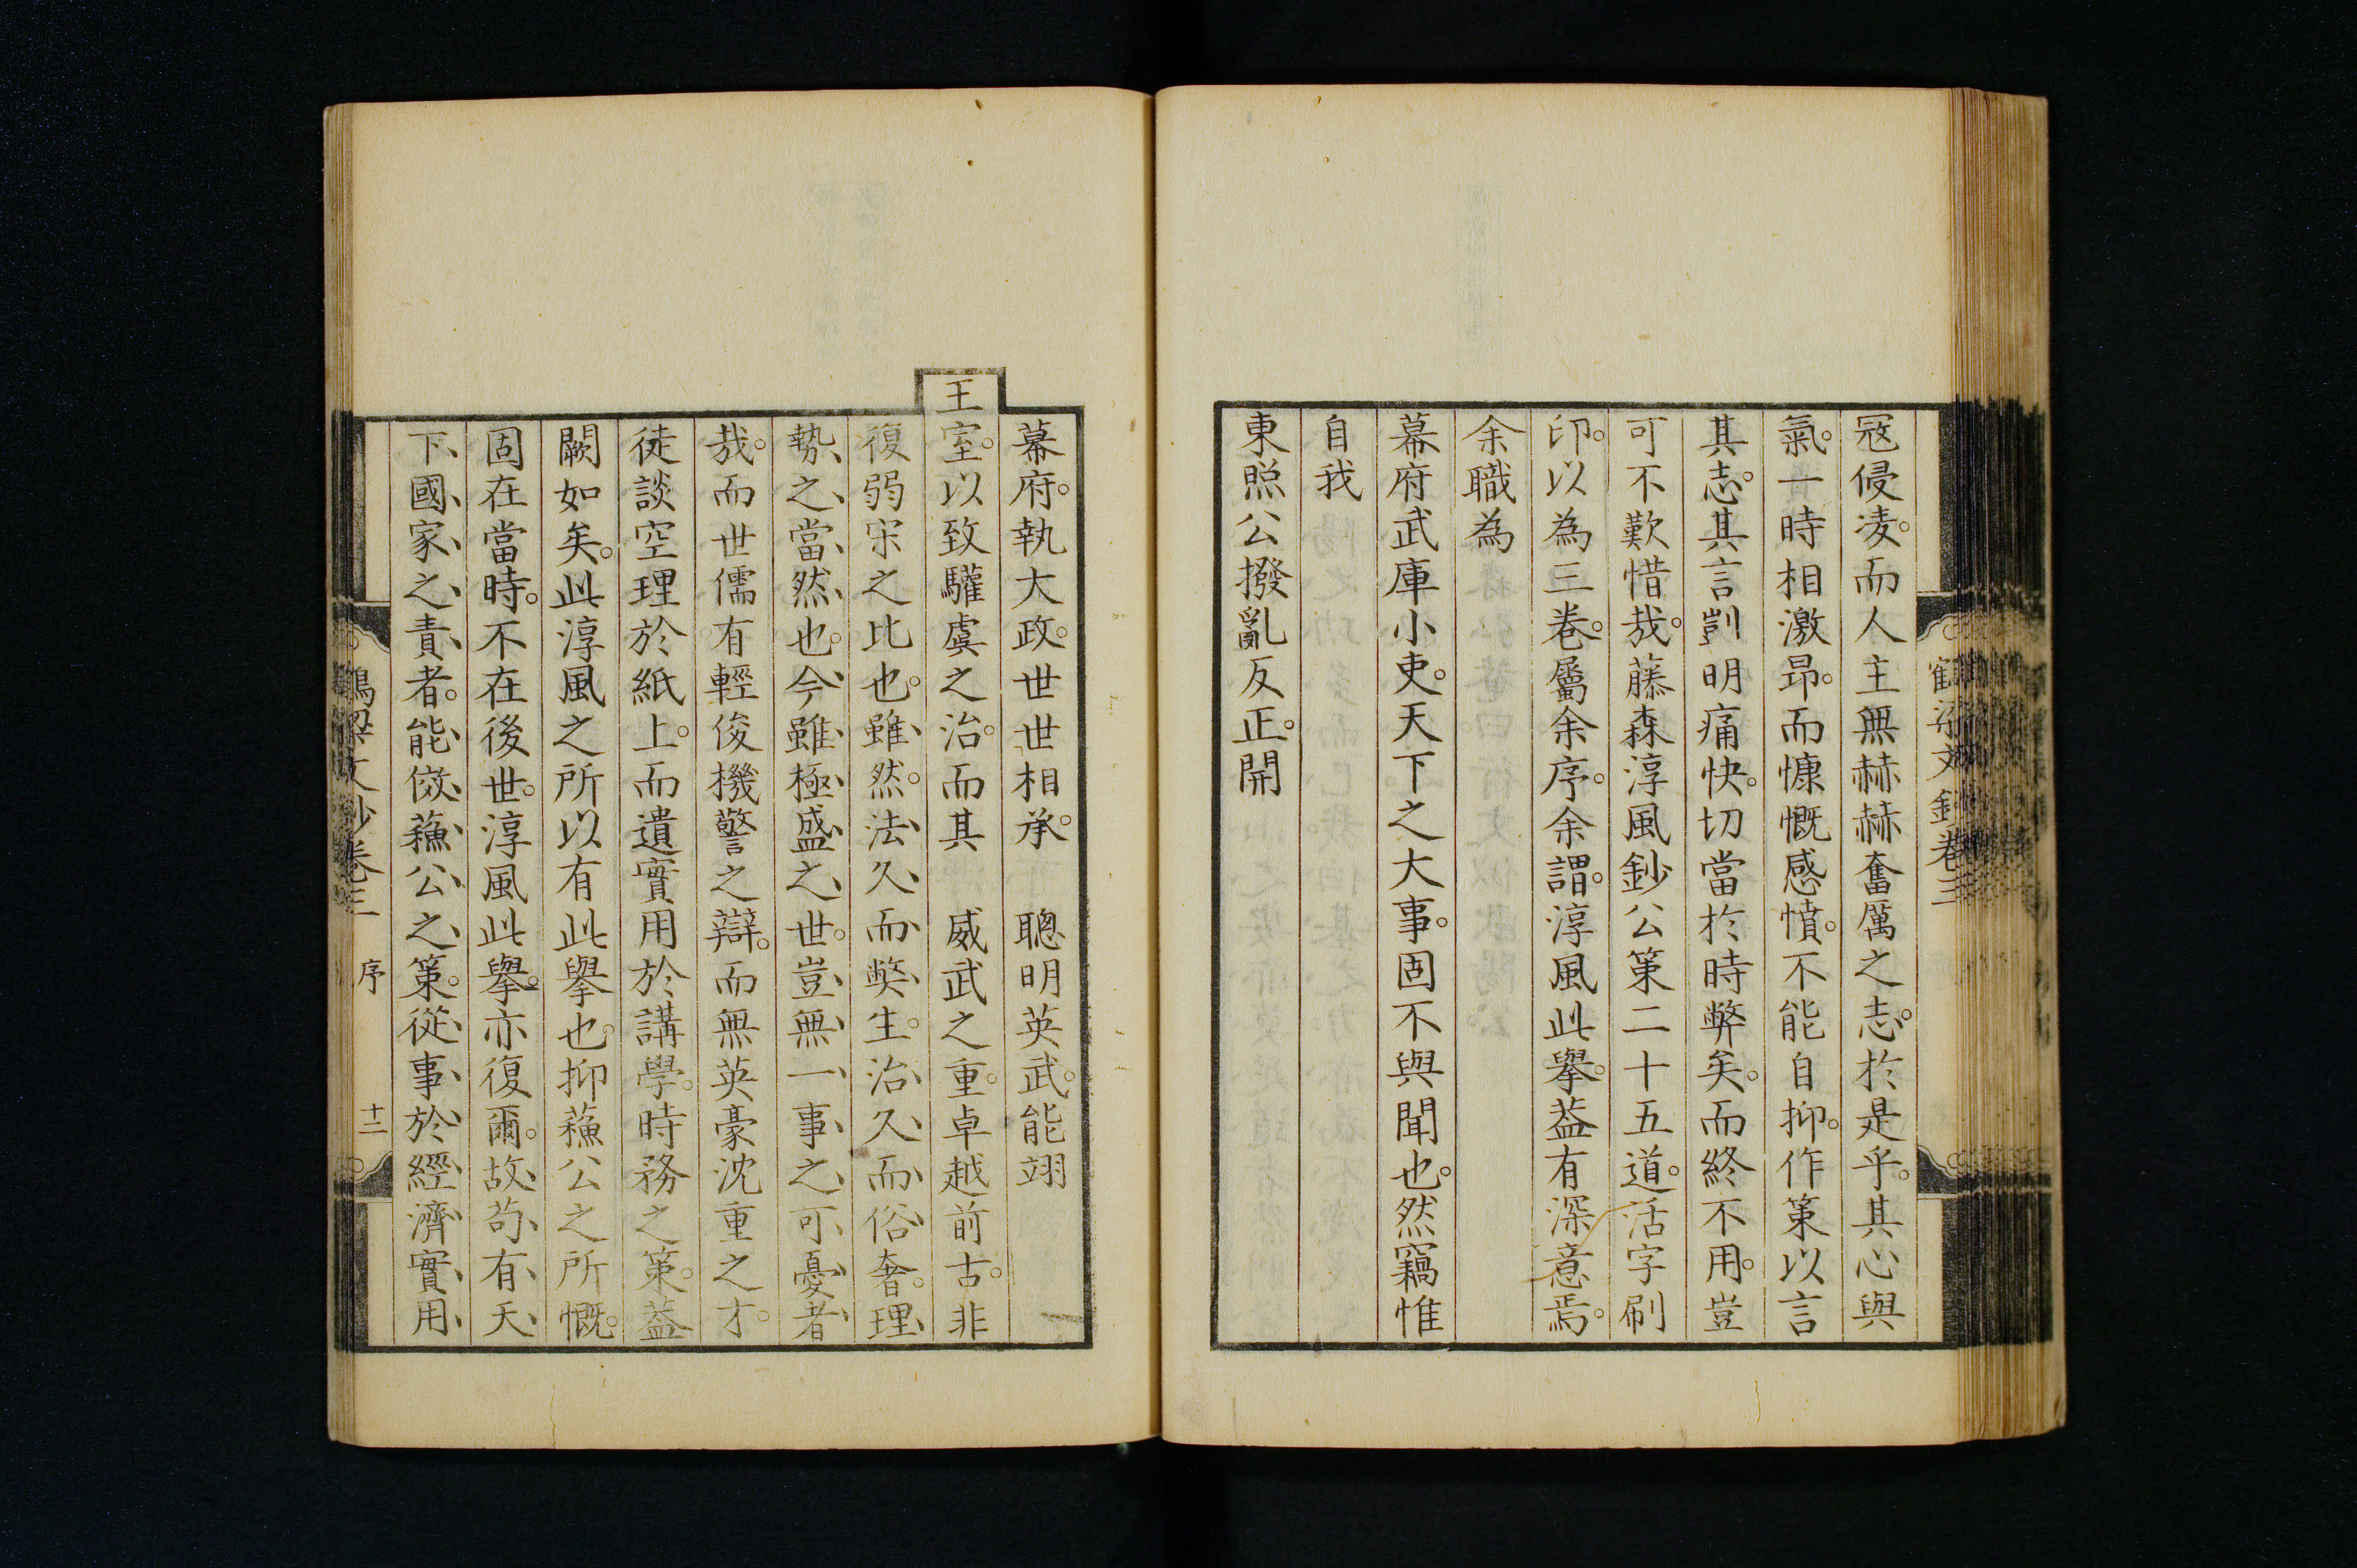 寇侵凌。而人主無赫赫奮厲之志。於是乎。其心與
氣。一時相激昂。而慷慨感憤。不能自抑。作策以言
其志。其言剴明痛快。切當於時弊矣。而終不用。豈
可不歎惜哉。藤森淳風鈔公策二十五道。活字刷
印。以為三卷。屬余序。余謂。淳風此擧。葢有深意焉。
余職為
幕府武庫小吏。天下之大事。固不與聞也。然竊惟
自我
東照公撥亂反正。開
鶴梁文鈔卷三
幕府。執大政。世世相承。聰明英武。能翊
王室。以致驩虞之治。而其威武之重。卓越前古。非
復弱宋之比也。雖然。法久而獘生。治久而俗奢。理
勢之當然也。今雖極盛之世。豈無一事之可憂者
哉。而世儒有輕俊機警之辯。而無英豪沈重之才。
徒談空理於紙上。而遺實用於講學。時務之策。葢
闕如矣。此淳風之所以有此擧也。抑蘓公之所慨。
固在當時。不在後世。淳風此擧。亦復爾。故苟有天
下國家之責者。能倣蘓公之策。從事於經濟實用
鶴梁文鈔卷三 序 十二